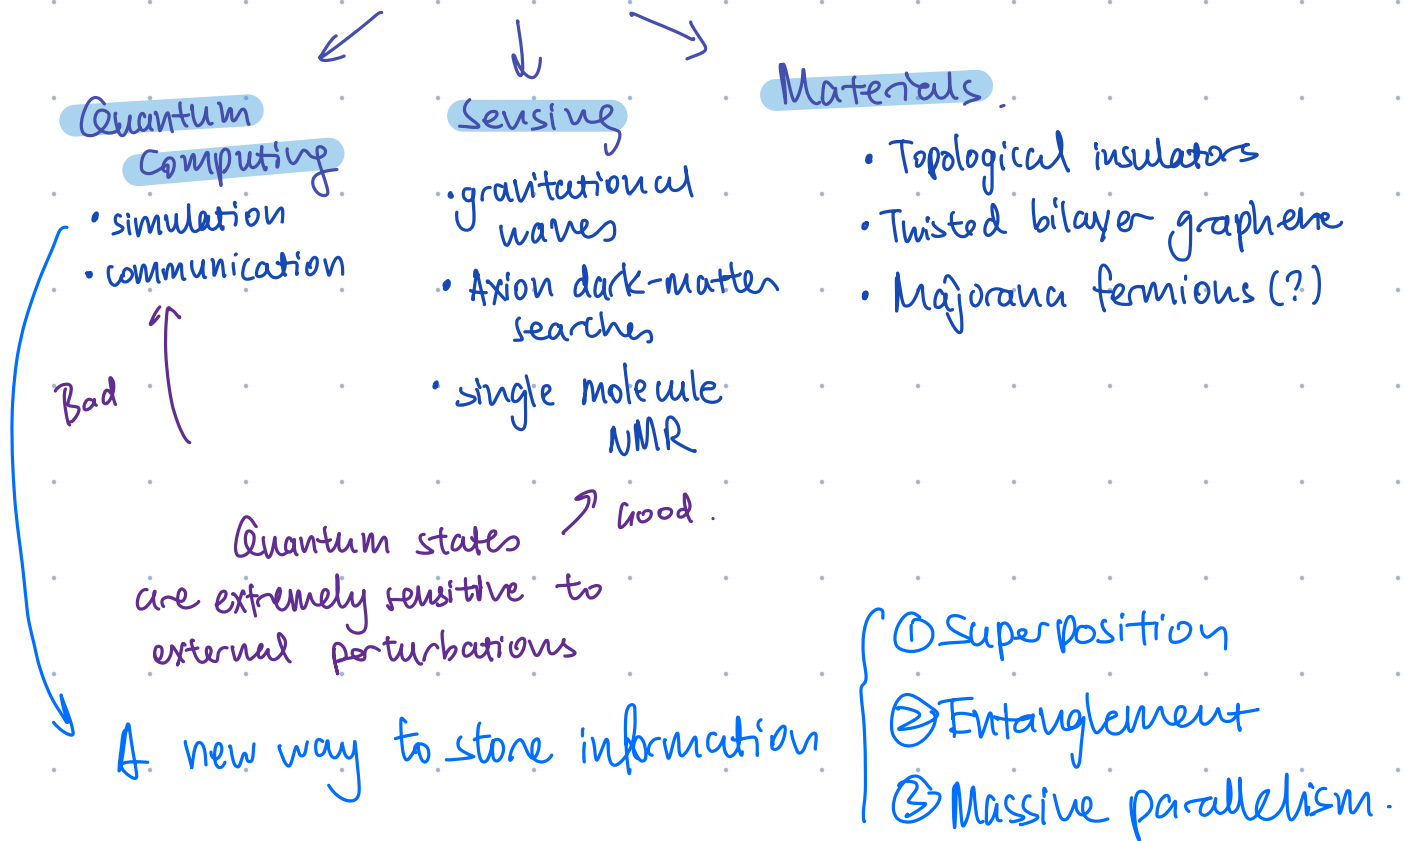 Quantum
Computing
• simulation
• communication
Bad
Sensing
• gravitational
waves
• Axion dark-matter
searches
• single molecule
NMR
Good.
Materials.
• Topological insulators
• Twisted bilayer graphene
• Majorana fermions (?)
Quantum states
are extremely sensitive to
external perturbations
A new way to store information
① Superposition
② Entanglement
③ Massive parallelism.